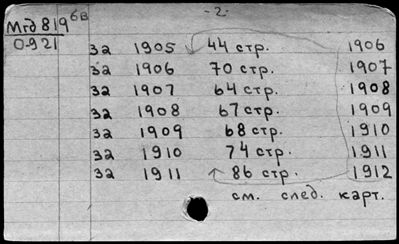 Мгд 819 бв -2-
0-921
за 1905 44 стр. 1906
за 1906 70 стр. 1907
за 1907 64 стр. 1908
за 1908 67 стр. 1909
за 1909 68 стр. 1910
за 1910 74 стр. 1911
за 1911 86 стр. 1912
см. след. карт.